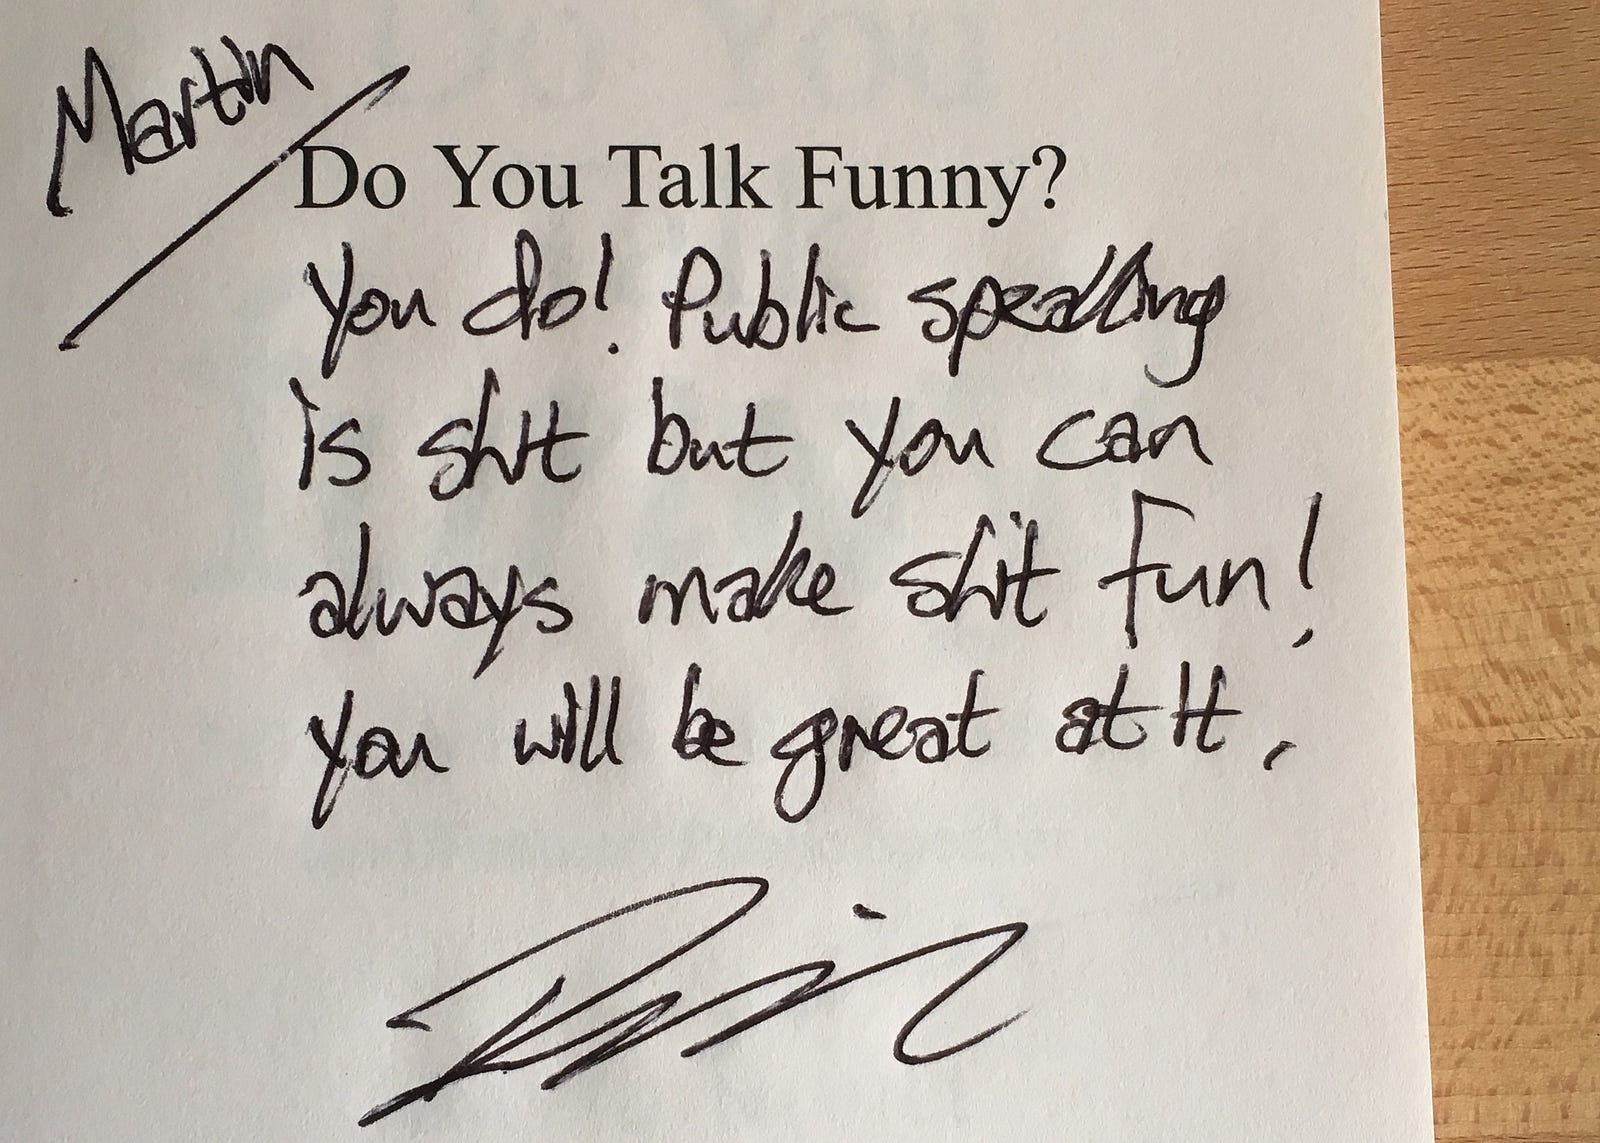 Martin
Do You Talk Funny?
You do! Public speaking
is shit but you can
always make shit fun!
You will be great at it.